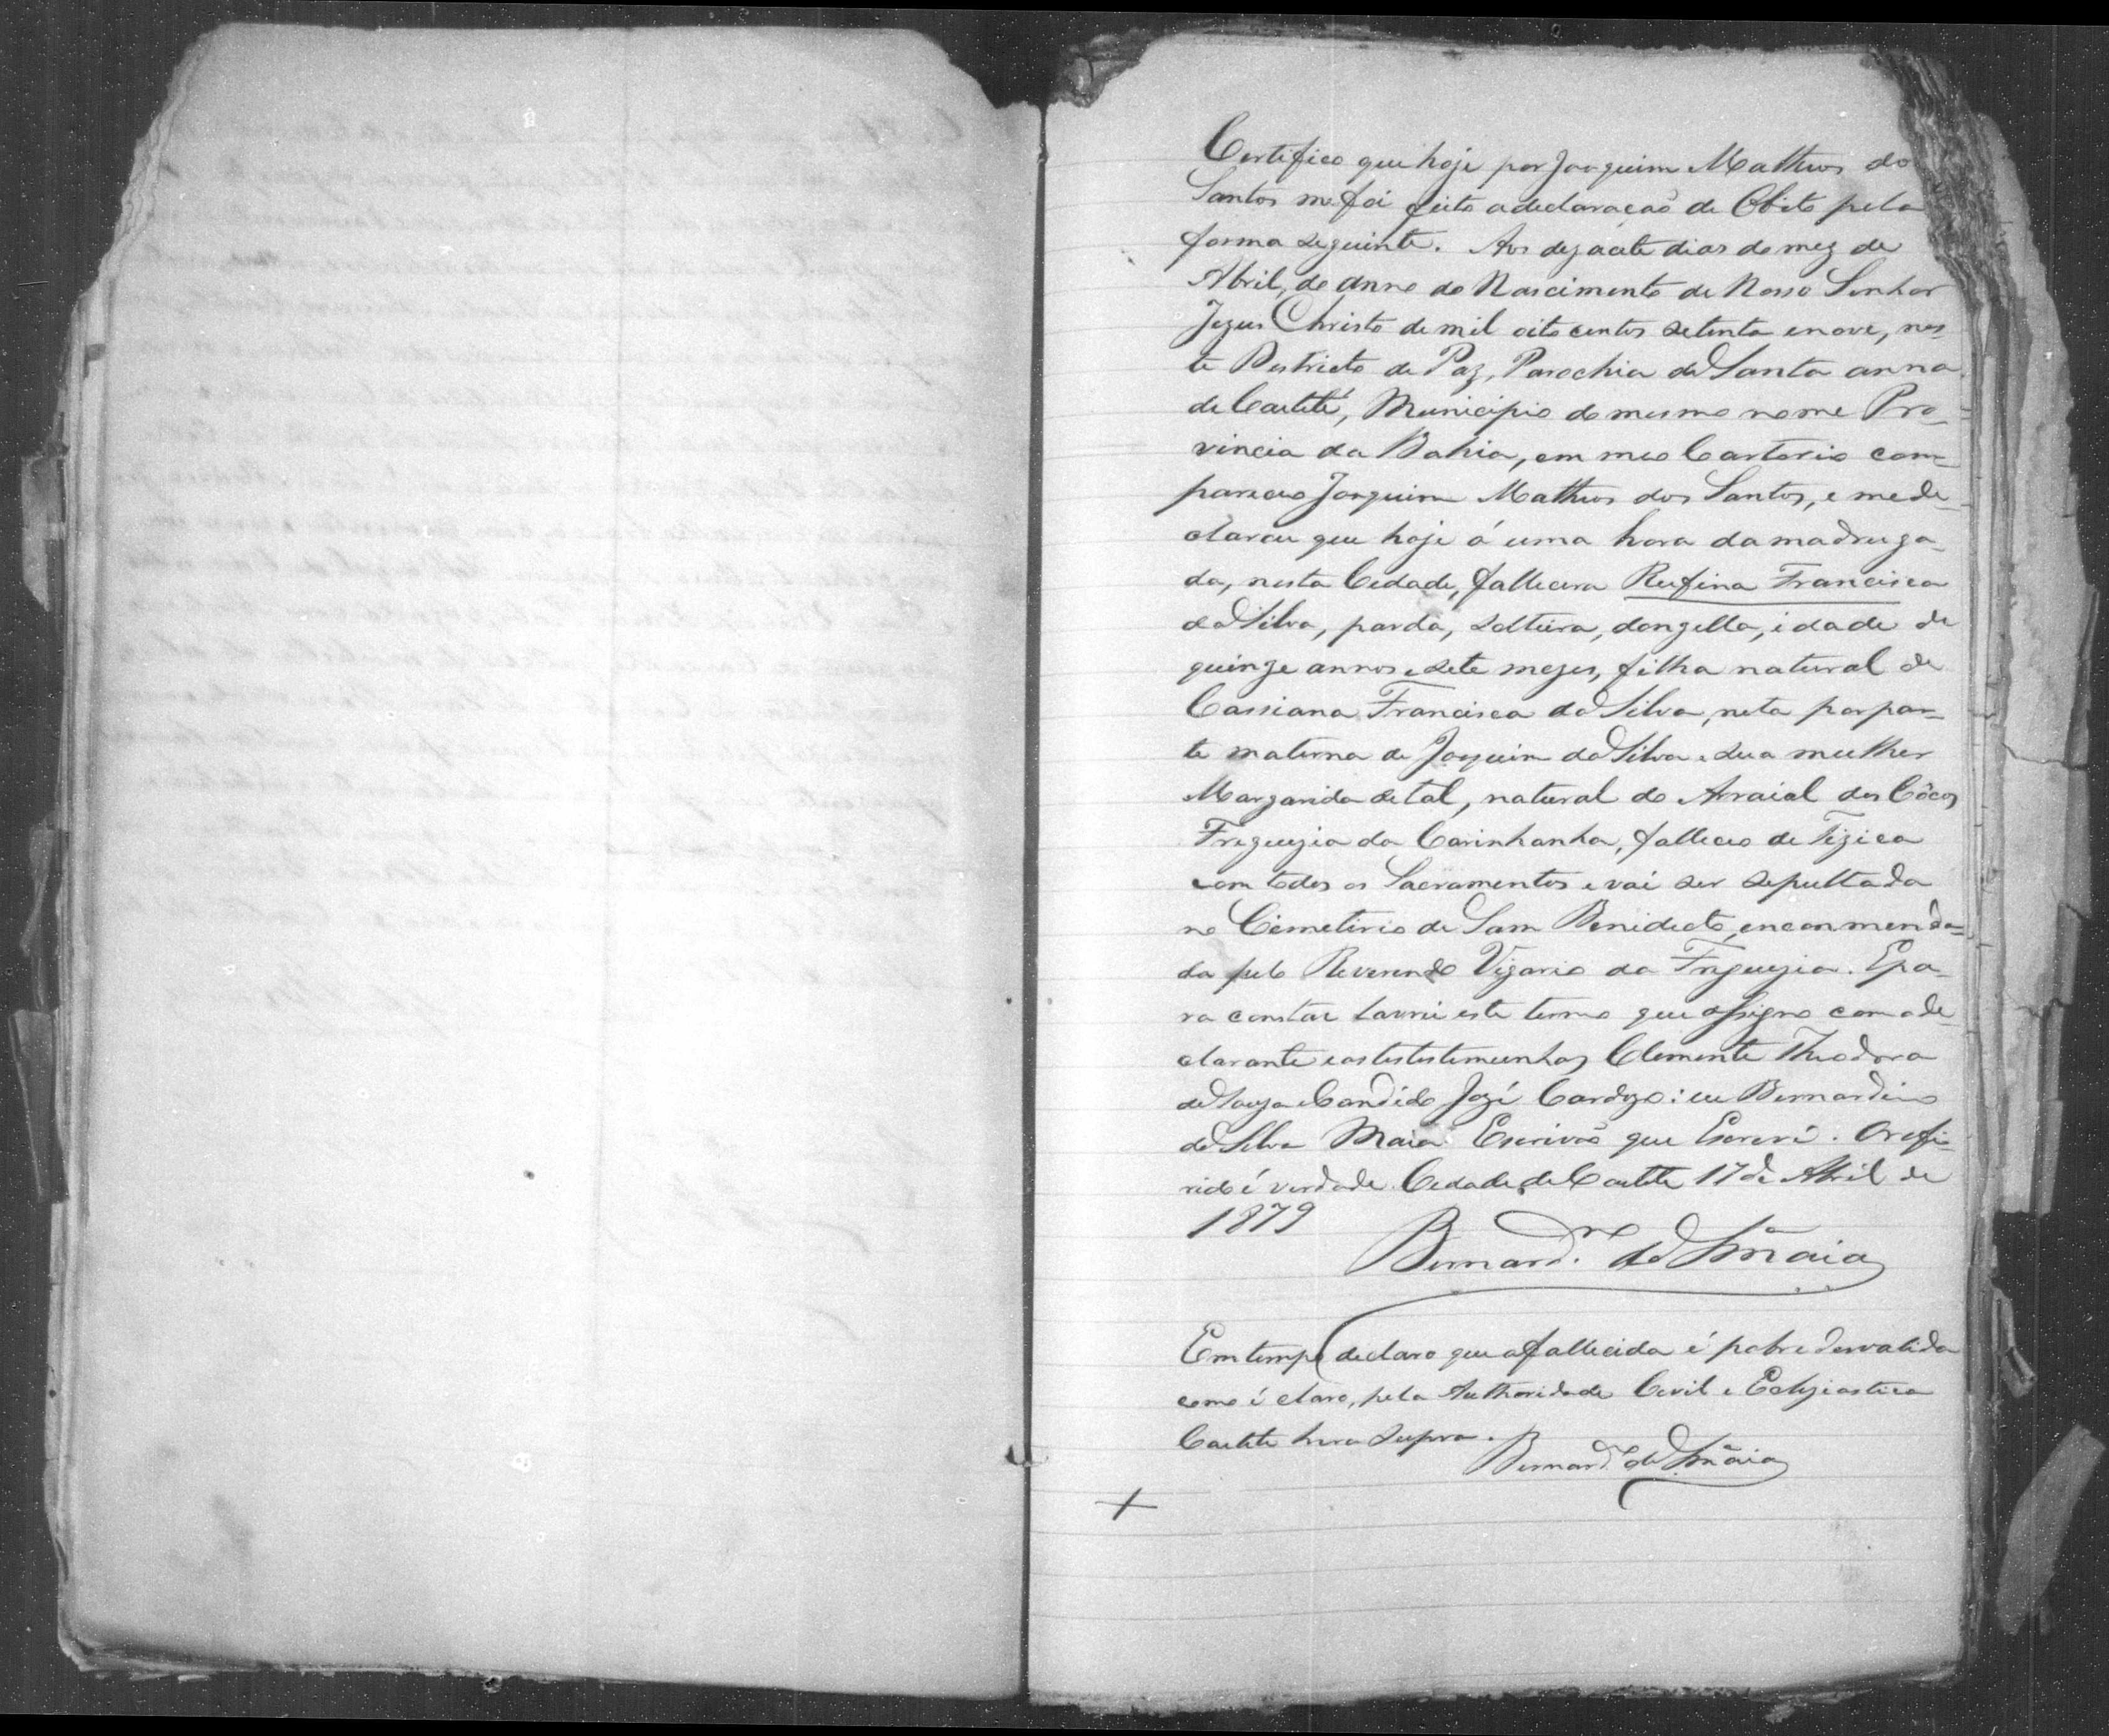 Certifico que hoje por Joaquim Matheos do
Santos me foi feito a declaração de Obito pela
forma seguinte. Aos dezacete dias do mez de
Abril, do anno do Nascimento de Nosso Senhor
Jezus Christo de mil oito centos setenta e nove, nes-
te Destricto de Paz, Parochia de Santa anna
de Caetité, Municipio do mesmo nome Pro-
vincia da Bahia, em meo Cartorio com-
pareceo Joaquim Matheos dos Santos, e me de-
clarou que hoje á uma hora da madruga-
da, nesta Cidade, fallecera Rufina Francisca
da Silva, parda, solteira, donzella, idade de
quinze annos e sete mezes, filha natural de
Cassiana Francisca da Silva, neta por par-
te materna de Joaquim da Silva e sua mulher
Margarida de tal, natural do Arraial dos Côcos
Freguezia da Carinhanha, falleceo de Tizica
com todos os Sacramentos e vai ser sepultada
no Cimeterio de Sam Benidicto, encommenda-
da pelo Reverendo Vigario da Freguezia. E pa-
ra constar lavrei este termo que assigno com o de-
clarante e as testestemunhas Clemente Theodoro
de Souza e Candido José Cardozo: eu Bernardino
da Silva Maia Escrivão que Escreví. O refe-
rido é verdade. Cidade de Caetité 17 de Abril de
1879
Bernard.no da S.a Maia
Em tempo declaro que a fallecida é pobre desvalida
como é claro, pela Authoridade Civil e Eclesiastica
Caetité hera supra.
Bernard.no da S.a Maia